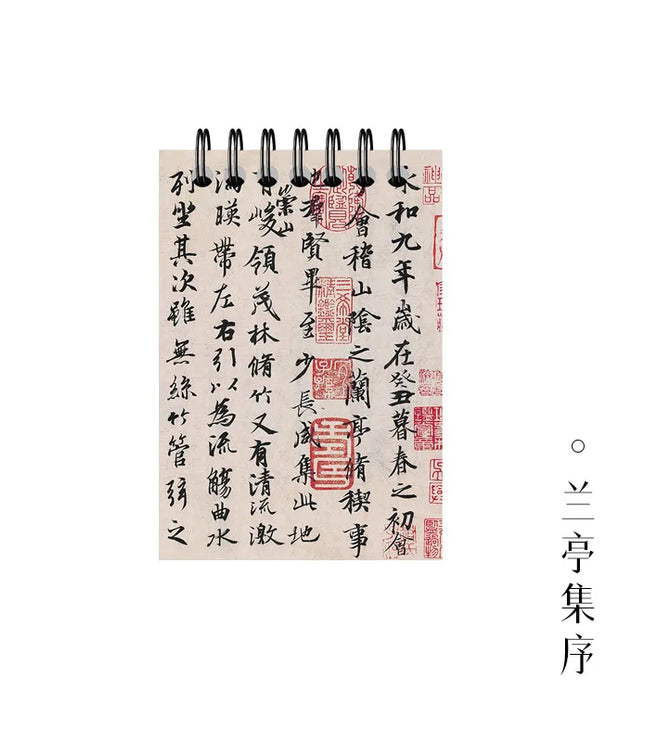 永和九年歲在癸丑暮春之初會
會稽山陰之蘭亭脩稧事
也羣賢畢至少長咸集此地
有崇山峻領茂林脩竹又有清流激
湍暎帶左右引以為流觴曲水
列坐其次雖無絲竹管弦之
神品
兰亭集序